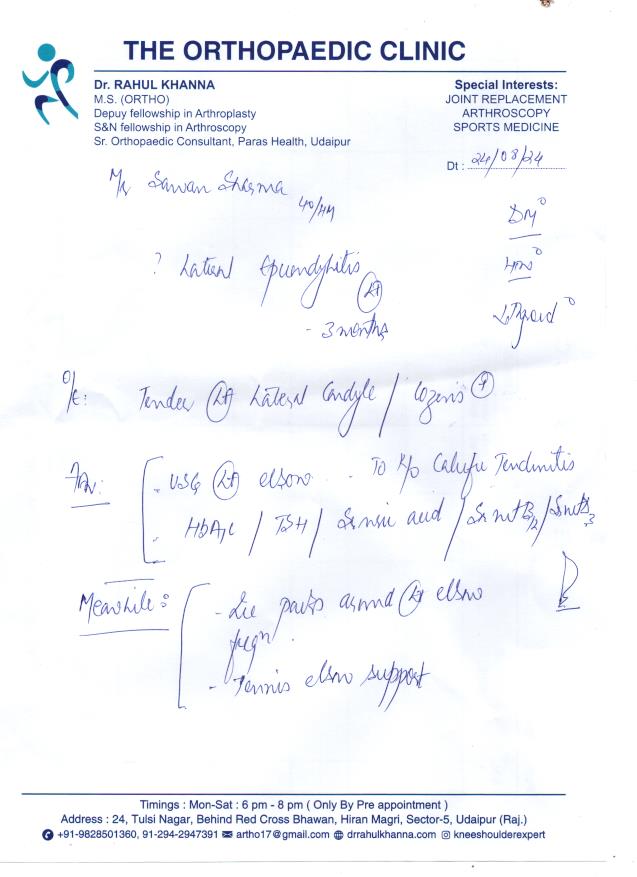 THE ORTHOPAEDIC CLINIC
Dr. RAHUL KHANNA
M.S. (ORTHO)
Depuy fellowship in Arthroplasty
S&N fellowship in Arthroscopy
Sr. Orthopaedic Consultant, Paras Health, Udaipur
Special Interests:
JOINT REPLACEMENT
ARTHROSCOPY
SPORTS MEDICINE
Dt : 24/08/24
Mr Sawan Sharma
40/M
DM°
HTN°
Thyroid°
? Lateral Epicondylitis
Lt
- 3 months
O/E: Tender Lt Lateral Condyle / Cozen's +
Inv:
. USG Lt elbow . To R/o Calcific Tendinitis
. HbA1C / TSH / Sr Uric acid / Sr Vit B12 / Sr Vit D3
Meanwhile:
- Ice packs around Lt elbow
- Tennis elbow support
Timings : Mon-Sat : 6 pm - 8 pm ( Only By Pre appointment )
Address : 24, Tulsi Nagar, Behind Red Cross Bhawan, Hiran Magri, Sector-5, Udaipur (Raj.)
+91-9828501360, 91-294-2947391 artho17@gmail.com drrahulkhanna.com kneeshoulderexpert